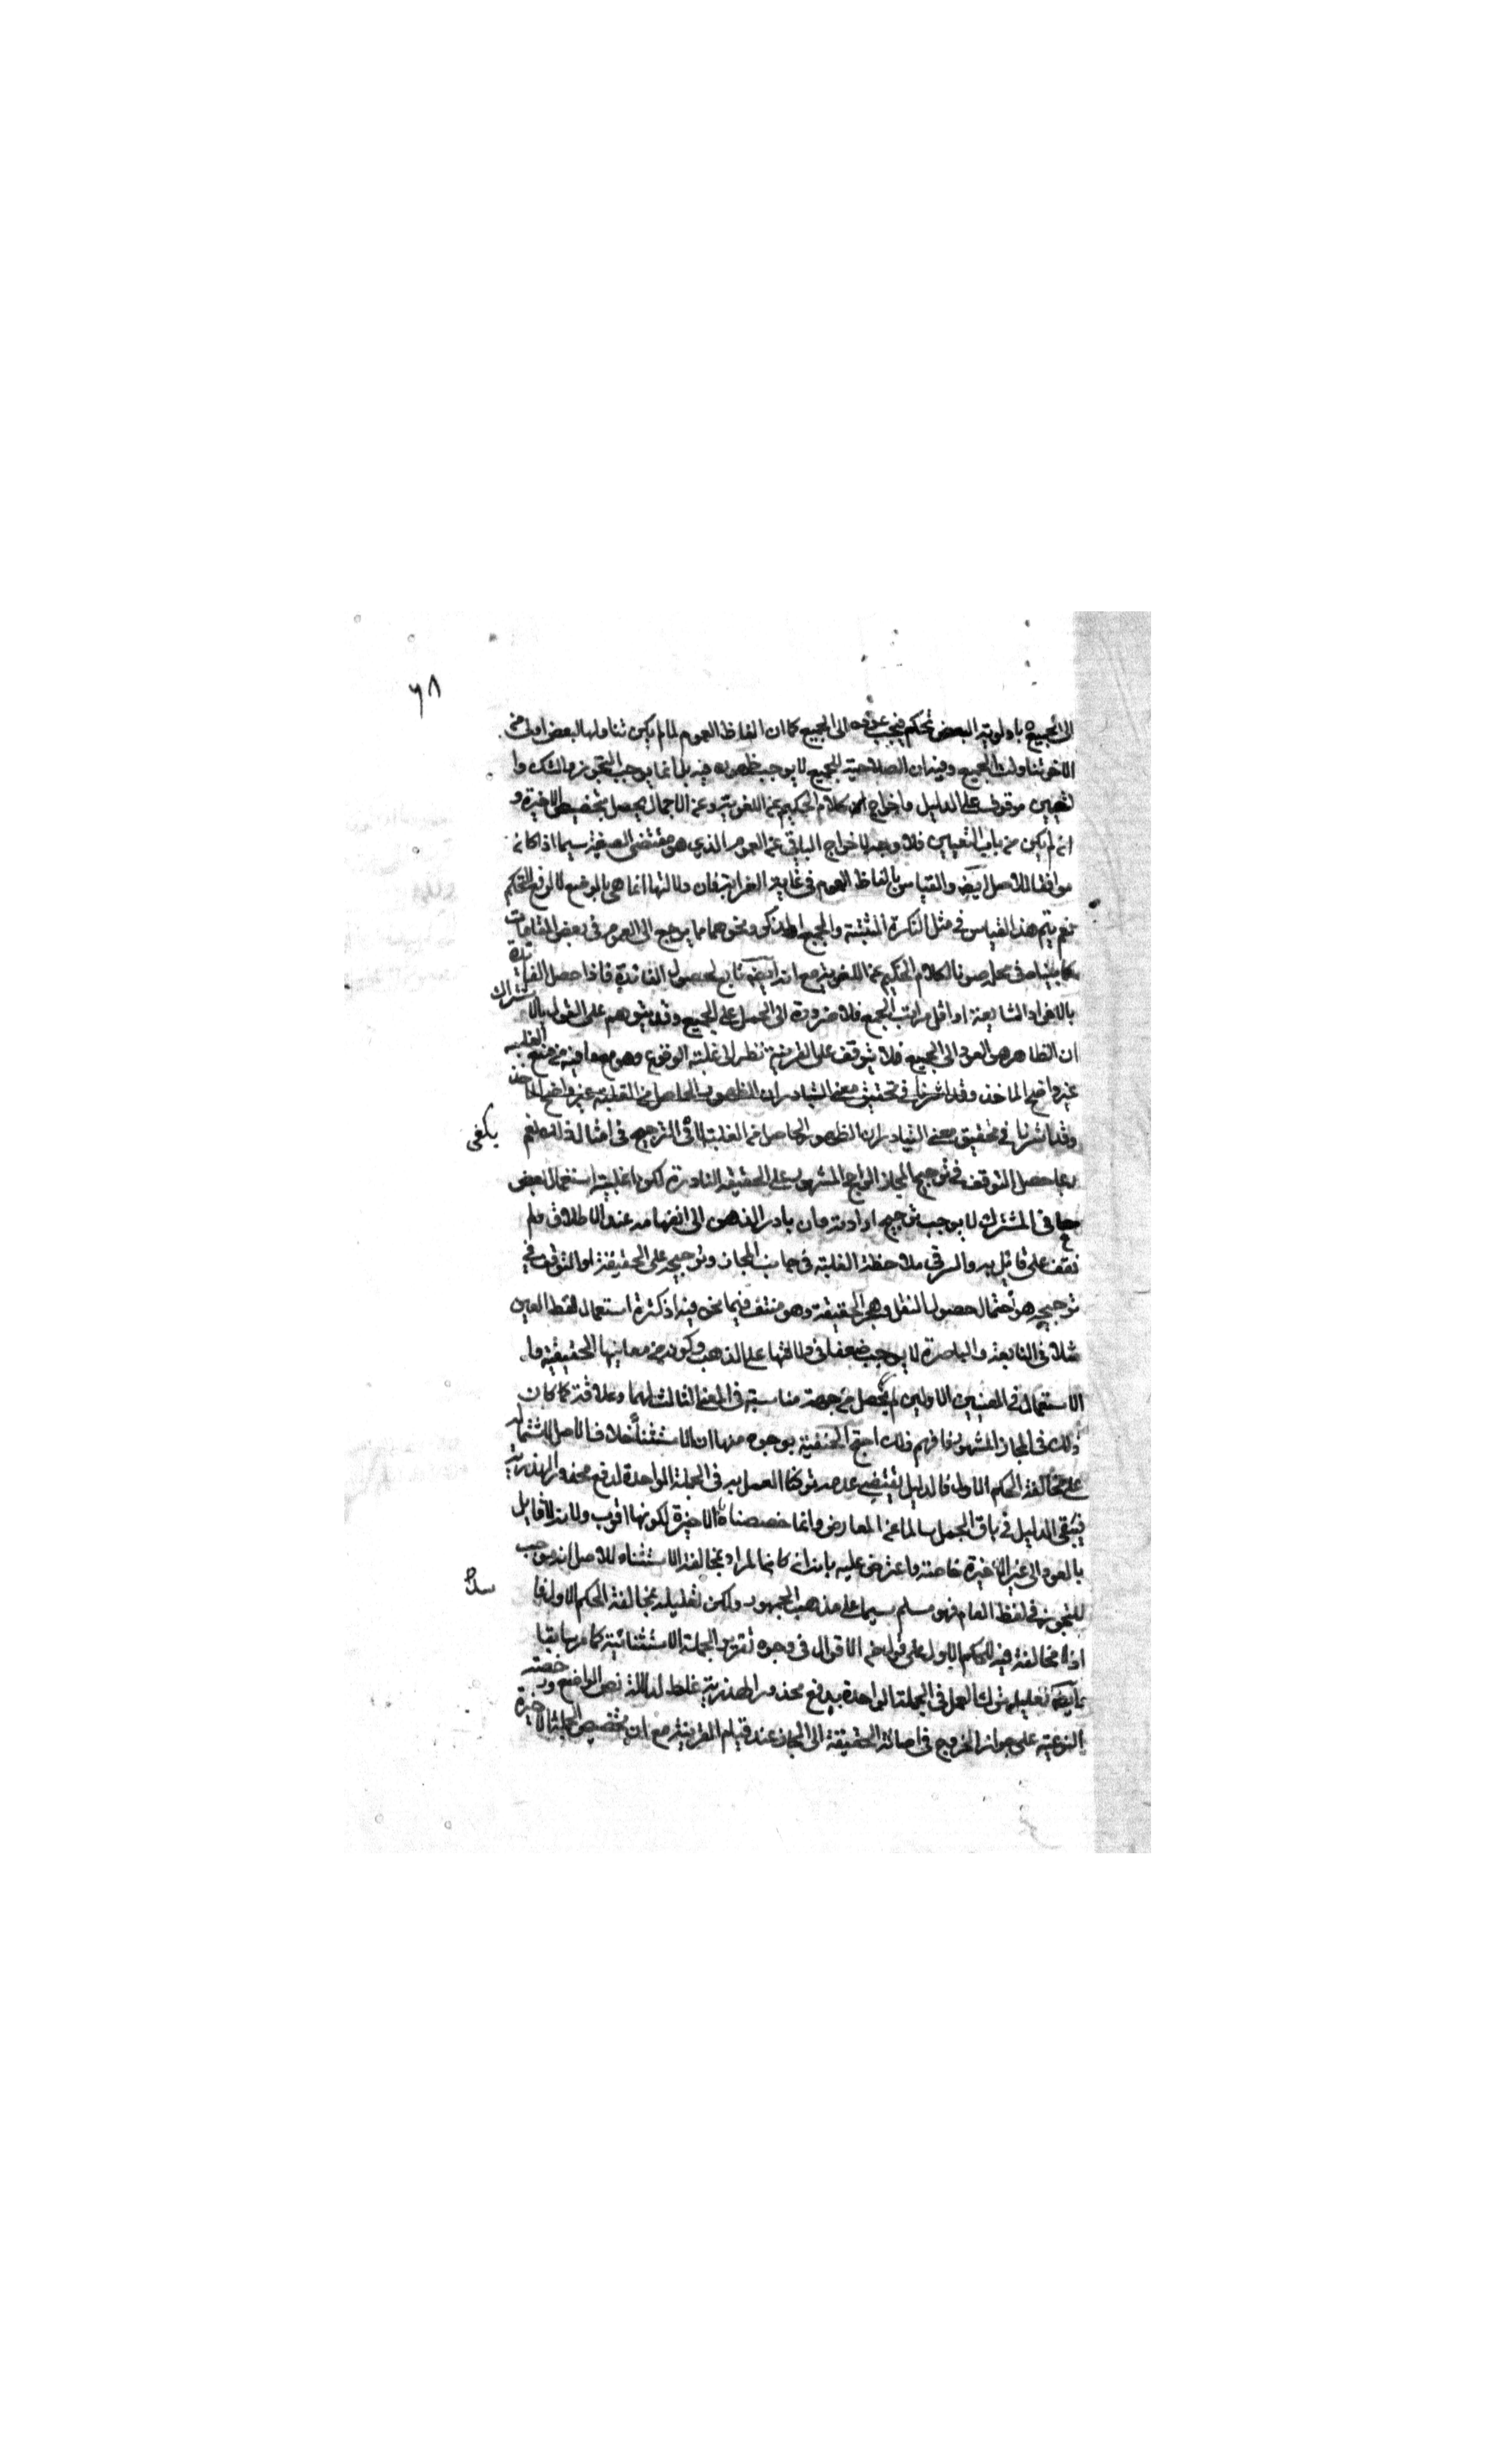 ٦٨
الى الجميع باولوية البعض تحكم فيجب عوده الى الجميع كما ان الفاظ العموم لما لم يكن تناولها لبعض اولى من
الاخر تناولت الجميع وفيه ان الصلاحية للجميع لا يوجب ظهوره فيه بل انما يوجب التجويز والشك وا
لتعيين موقوف على الدليل واخراج كلام الحكيم عن اللغوية وعن الاجمال يحصل بتخصيص الاخيرة و
ان لم يكن من باب التعيين فلا وجه لاخراج الباقي عن العموم الذي هو مقتضى الصيغة سيما اذا كان
موافقا للاصل ايضا والقياس بالفاظ العموم في غاية الغرابة فان دلالتها انما هي بالوضع لا لرفع التحكم
نعم يتم هذا القياس في مثل النكرة المثبتة والجمع المنكور ونحوهما مما يرجع الى العموم في بعض المقامات
كما بيناه في محله صونا لكلام الحكيم عن اللغوية مع انه ايضا تابع لحصول الفائدة فاذا حصل الفائدة
بالافراد الشايعة او اقل مراتب الجمع فلا ضرورة الى الحمل على الجميع وقد يتوهم على القول بالاشتراك
ان الظاهر هو العود الى الجميع فلا يتوقف على القرينة نظرا الى غلبة الوقوع وهو مع ما فيه من منع الغلبة
غير واضح الماخذ وقد اشرنا في تحقيق معنى التبادر ان الظهور الحاصل من الغلبة غير واضح الماخذ
وقد اشرنا في تحقيق معنى التبادر ان الظهور الحاصل من الغلبة لا يكفى في الترجيح في امثال ذلك نعم
ربما حصل التوقف في ترجيح المجاز الراجح المشهور على الحقيقة النادرة لكن اغلبية استعمال بعض
معاني المشترك لا يوجب ترجيح ارادته وان بادر الذهن الى انفهامه عند الاطلاق ولم
نقف على قائل به والسر في ملاحظة الغلبة في جانب المجاز وترجيحه على الحقيقة او التوقف في
ترجيحه هو احتمال حصول النقل وهجر الحقيقة وهو منتف فيما نحن فيه اذ كثرة استعمال لفظ العين
مثلا في النابعة والباصرة لا يوجب ضعفا في دلالتها على الذهب وكونه من معانيها الحقيقية وا
الاستعمال في المعنيين الاولين لم يحصل من جهة مناسبة في المعنى الثالث لهما وعلاقة كما كان
ذلك في المجاز المشهور فافهم ذلك احتج الحنفية بوجوه منها ان الاستثناء خلاف الاصل لاشتماله
على مخالفة الحكم الاول فالدليل يقتضي عدمه تركنا العمل به في الجملة الواحدة لدفع محذور الهذرية
فيبقى الدليل في باقي الجمل سالما عن المعارض وانما خصصناه الاخيرة لكونها اقرب ولانه لا قايل
بالعود الى غير الاخيرة خاصة واعترض عليه بانه ان كان المراد بمخالفة الاستثناء للاصل انه موجب
للتجوز في لفظ العام فهو مسلم سيما على مذهب الجمهور ولكن تعليله بمخالفة الحكم الاول فا
سد
اذ لا مخالفة فيه للحكم الاول على قول من الاقوال في وجوه تقرير الجملة الاستثنائية كما مر سابقا
وايضا تعليل ترك العمل في الجملة الواحدة بدفع محذور الهذرية غلط لدلالة نص الواضع ورخصته
النوعية على جواز الخروج في اصالة الحقيقة الى المجاز عند قيام القرينة مع ان تخصيص الجملة الاخيرة